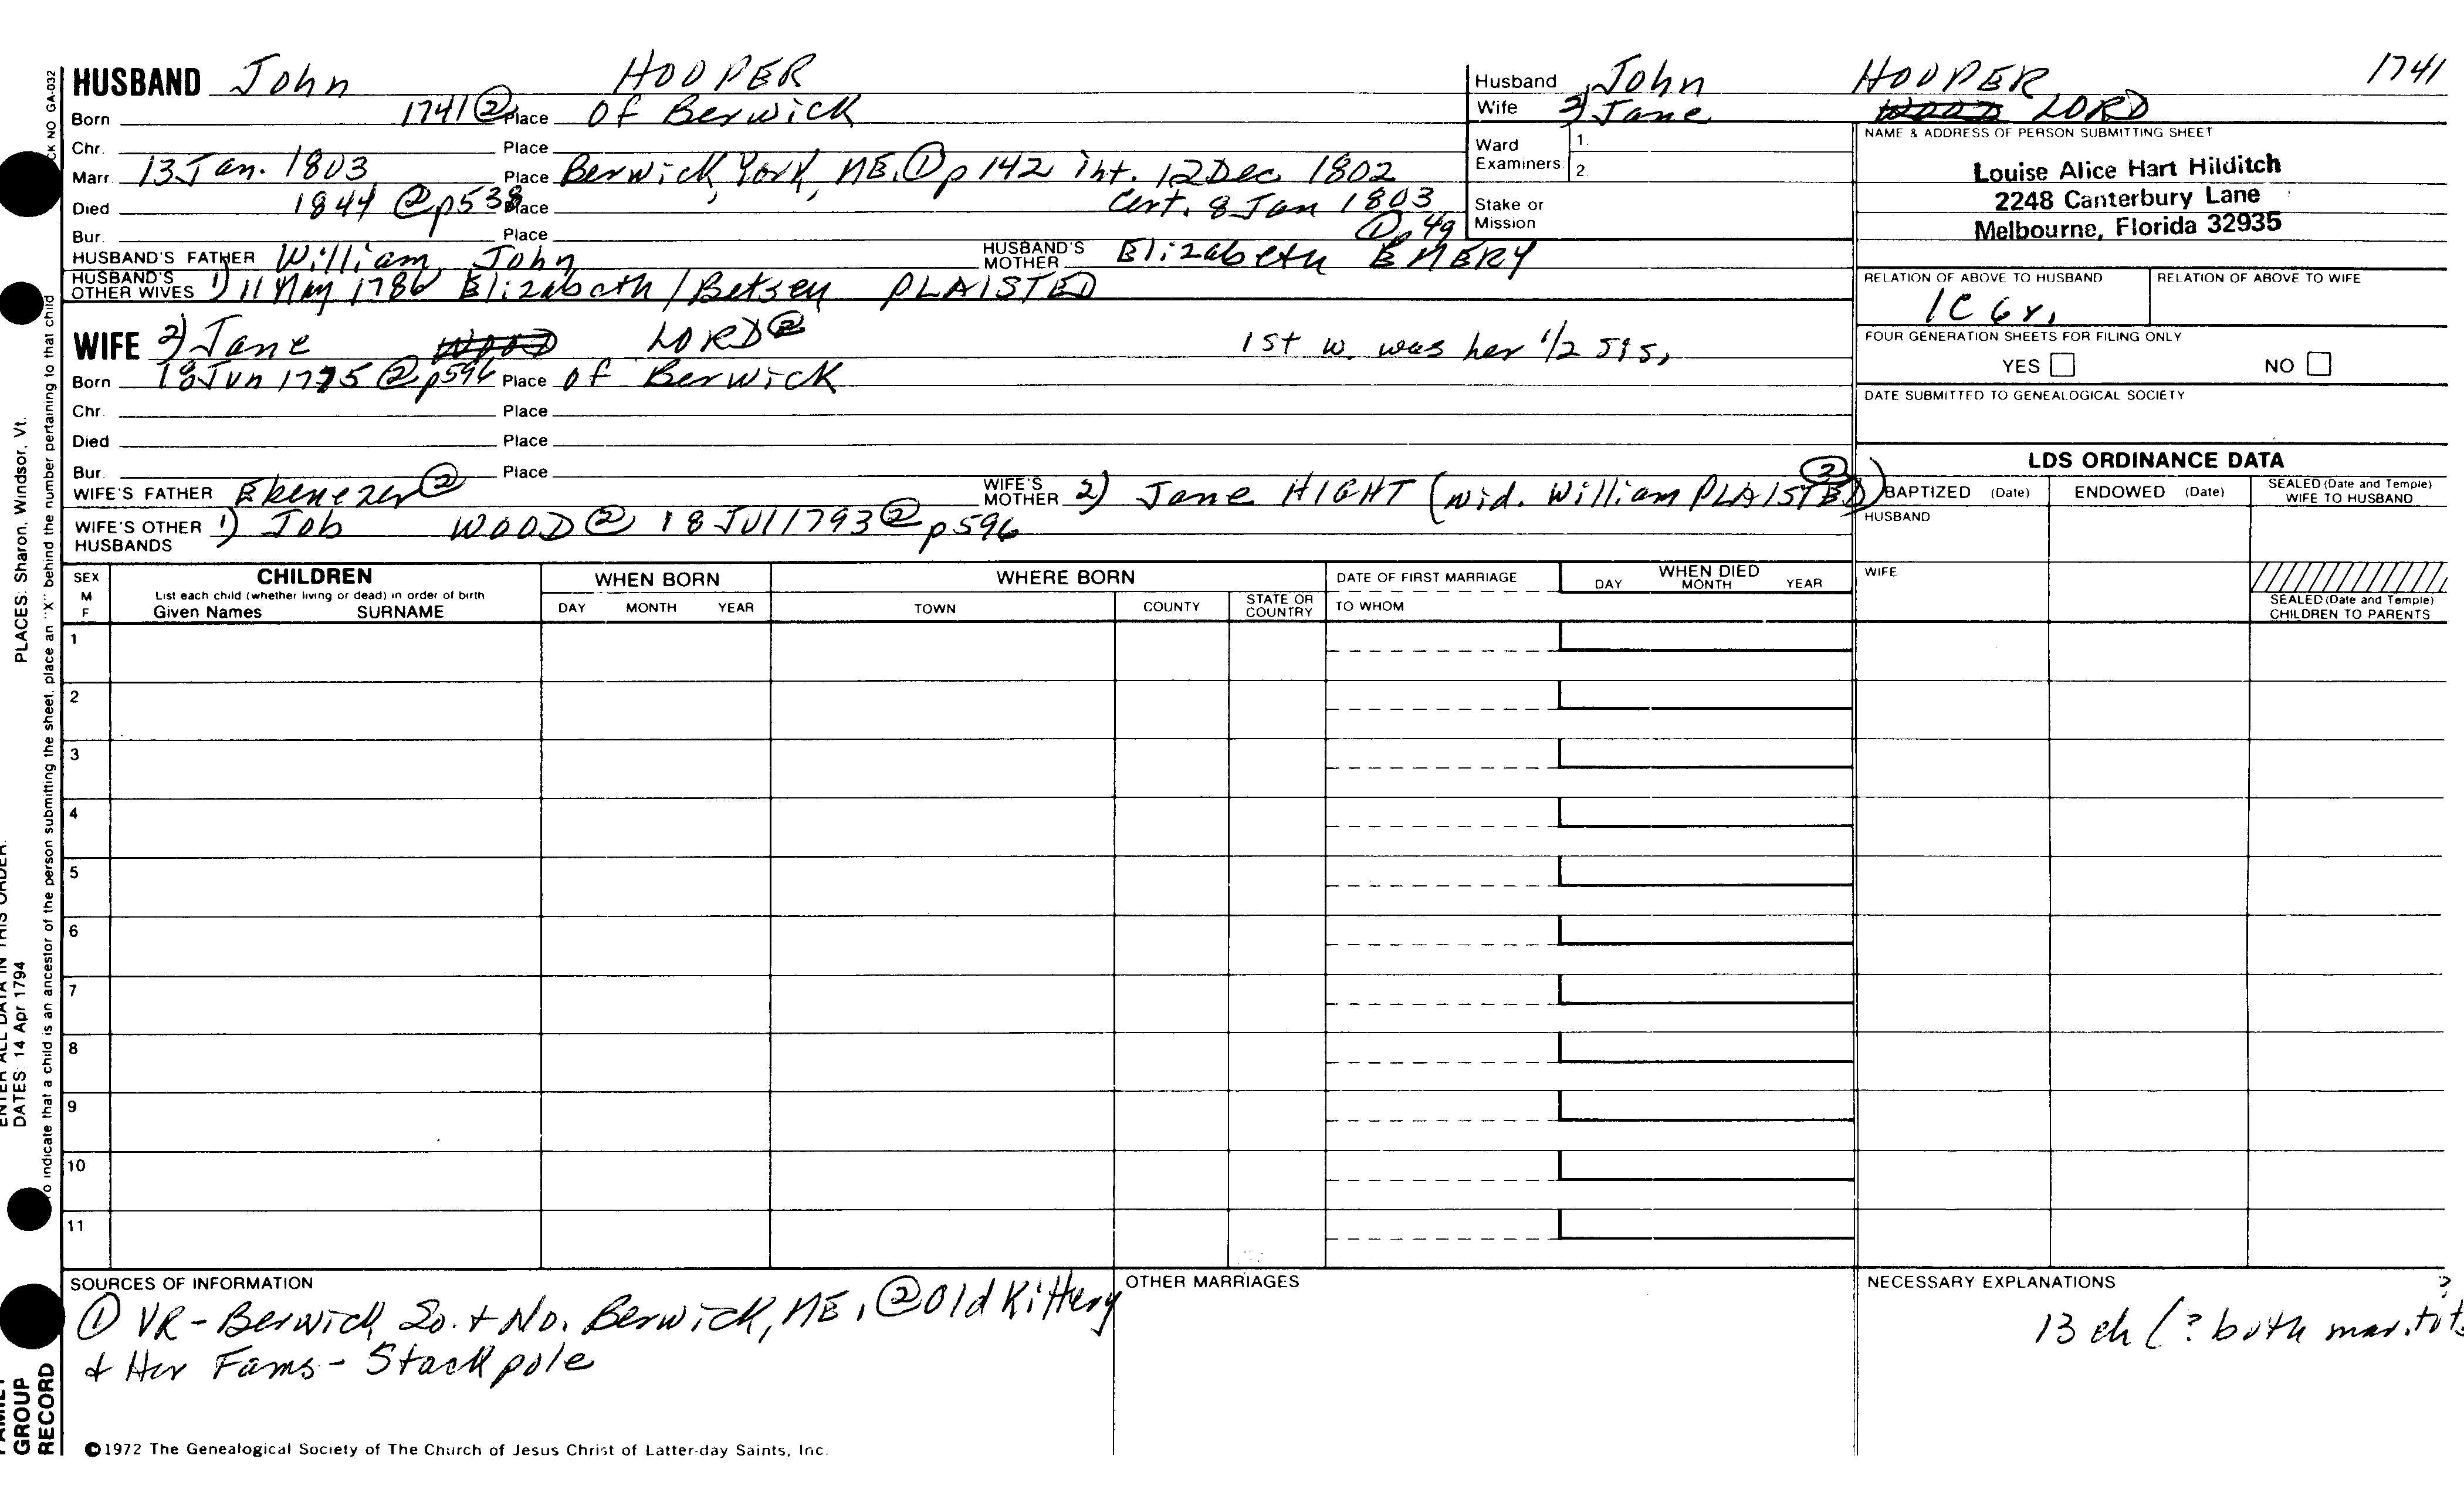 HUSBAND John HOOPER
Born 1741 ② Place Of Berwick
Chr. Place
Marr. 13 Jan. 1803 Place Berwick, York, ME. ① p 142 int. 12 Dec 1802
Died 1844 ② p538 Place Cert. 8 Jan 1803
Bur. Place ① p 49
HUSBAND'S FATHER William John HUSBAND'S MOTHER Elizabeth EMERY
HUSBAND'S OTHER WIVES 1) 11 May 1786 Elizabeth / Betsey PLAISTED
WIFE 2) Jane WOOD LORD ② 1st w. was her 1/2 sis.
Born 18 Jun 1775 ② p596 Place Of Berwick
Chr. Place
Died Place
Bur. Place
WIFE'S FATHER Ebenezer ② WIFE'S MOTHER 2) Jane HIGHT (wid. William PLAISTED) ②
WIFE'S OTHER HUSBANDS 1) Job WOOD ② 18 Jul 1793 ② p596
Husband John HOOPER 1741
Wife 2) Jane WOOD LORD
Ward Examiners: 1. 2.
Stake or Mission
NAME & ADDRESS OF PERSON SUBMITTING SHEET
Louise Alice Hart Hilditch
2248 Canterbury Lane
Melbourne, Florida 32935
RELATION OF ABOVE TO HUSBAND RELATION OF ABOVE TO WIFE
1C 6r.
FOUR GENERATION SHEETS FOR FILING ONLY
YES NO
DATE SUBMITTED TO GENEALOGICAL SOCIETY
LDS ORDINANCE DATA
BAPTIZED (Date) ENDOWED (Date) SEALED (Date and Temple) WIFE TO HUSBAND
HUSBAND
WIFE
SEALED (Date and Temple) CHILDREN TO PARENTS
SEX M F
CHILDREN
List each child (whether living or dead) in order of birth
Given Names SURNAME
WHEN BORN
DAY MONTH YEAR
WHERE BORN
TOWN COUNTY STATE OR COUNTRY
DATE OF FIRST MARRIAGE
TO WHOM
WHEN DIED
DAY MONTH YEAR
1
2
3
4
5
6
7
8
9
10
11
SOURCES OF INFORMATION
① VR - Berwick, So. + No. Berwick, ME, ② Old Kittery
+ Her Fams - Stackpole
OTHER MARRIAGES
NECESSARY EXPLANATIONS
?
13 ch (? both mar. tot
©1972 The Genealogical Society of The Church of Jesus Christ of Latter-day Saints, Inc.
CK NO GA-032
To indicate that a child is an ancestor of the person submitting the sheet, place an "X" behind the number pertaining to that child
PLACES: Sharon, Windsor, Vt.
ENTER ALL DATA IN THIS ORDER:
DATES: 14 Apr 1794
FAMILY
GROUP
RECORD